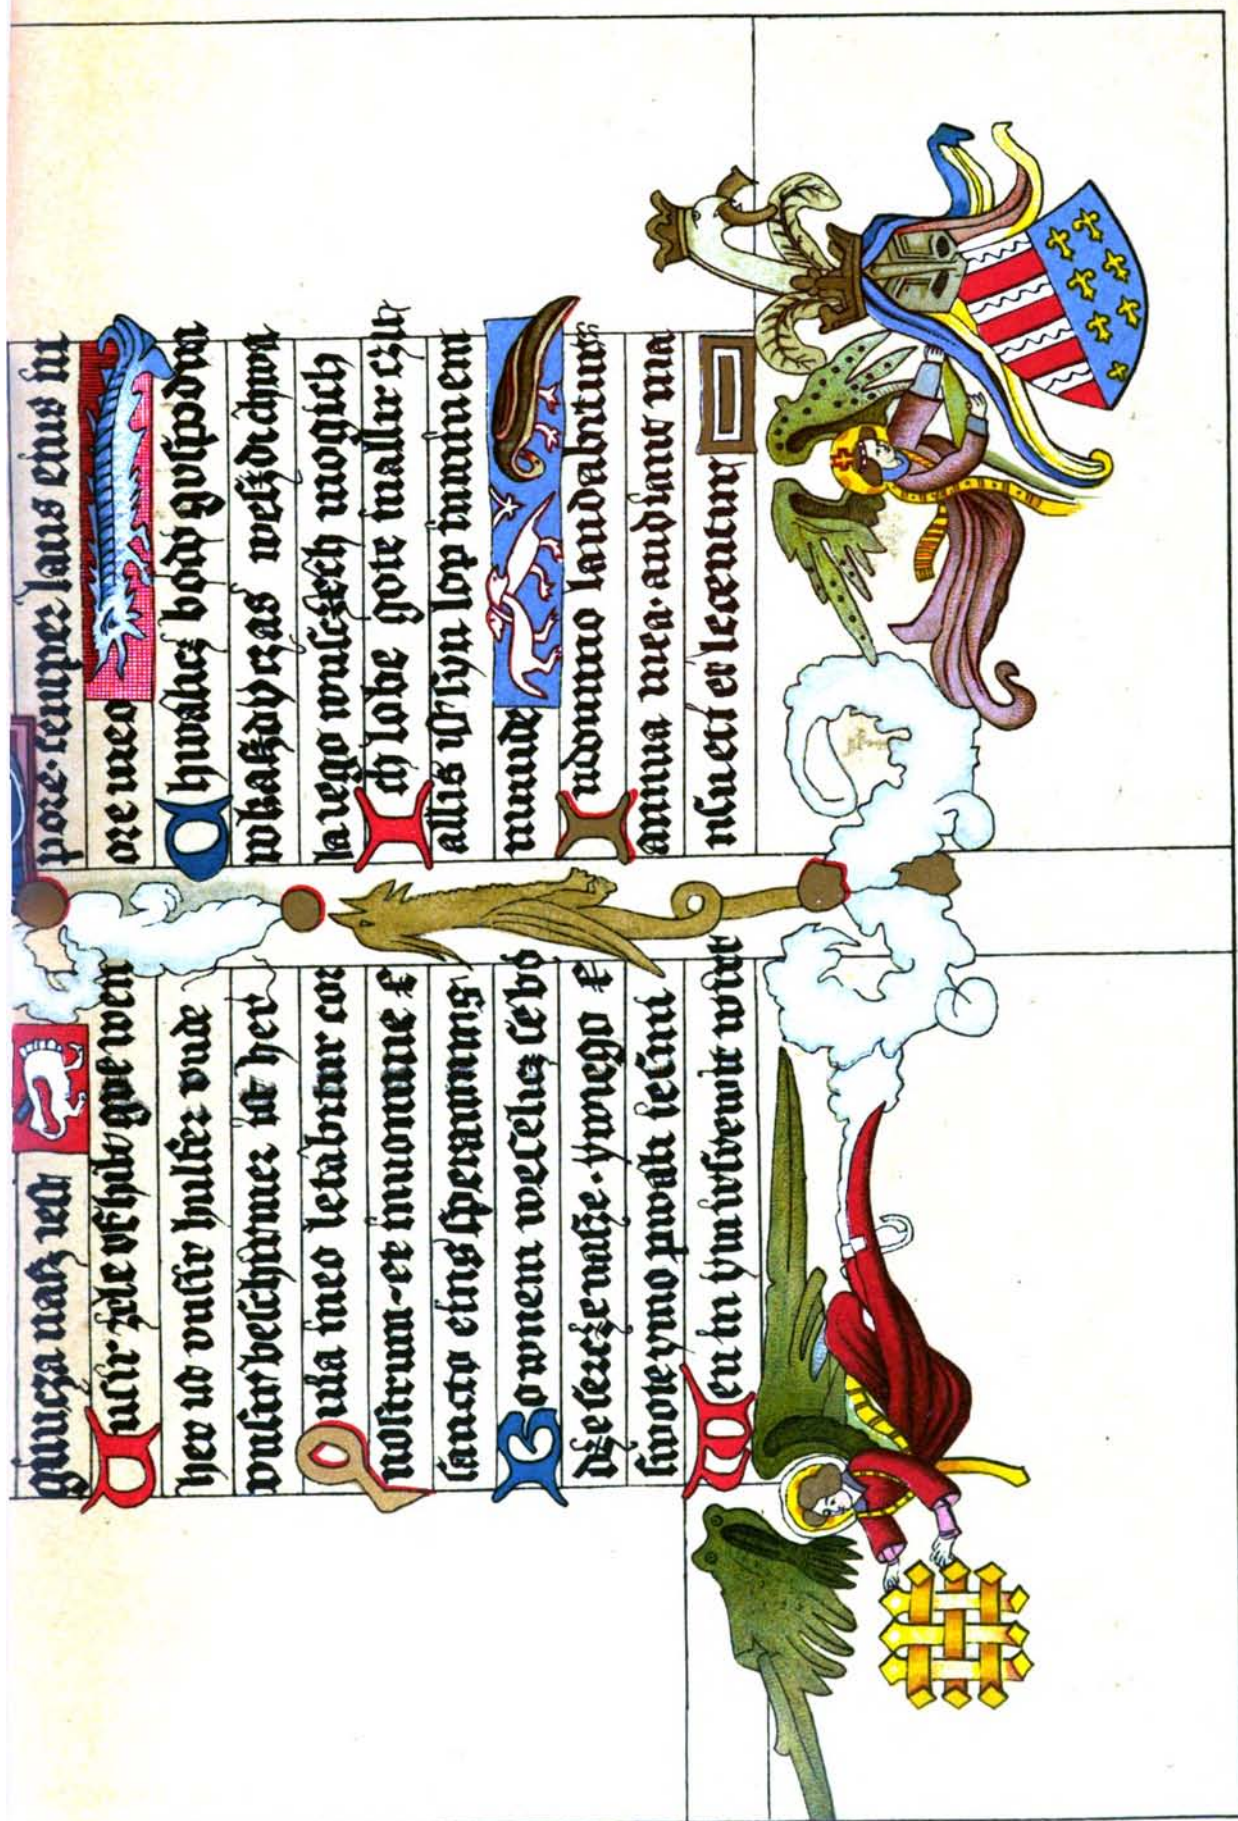 gimcza nasz iest
Unsir zele ofhubgde wen
her id unsir hulfer unde
unsir beschirmer ist her
Quia in eo letabitur cor
nostrum et in nomine
sancto eius sperauimus
Bo w nem weselicz sebo
dze sercze nasze. y w iego
swote ymo pwali iesmi
Wen in ym wirvrewit wirt
pore. semper laus eius in
ore meo
Chwalicz bodo gospodna
w kaszdy czas weszdi chwa
la iego w usczech mogich
Ich lobe gote in allir czit
allis ist syn lop in minem
munde
In domino laudabitur
anima mea. audiant ma
nsueti et letentur